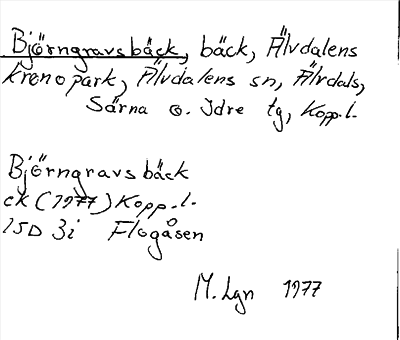 Björngravsbäck, bäck, Älvdalens
kronopark, Älvdalens sn, Älvdals,
Särna o. Idre tg, Kopp.l.
Björngravsbäck
ek (1977) Kopp.l.
15D 3i Flogåsen
M. Lgn 1977